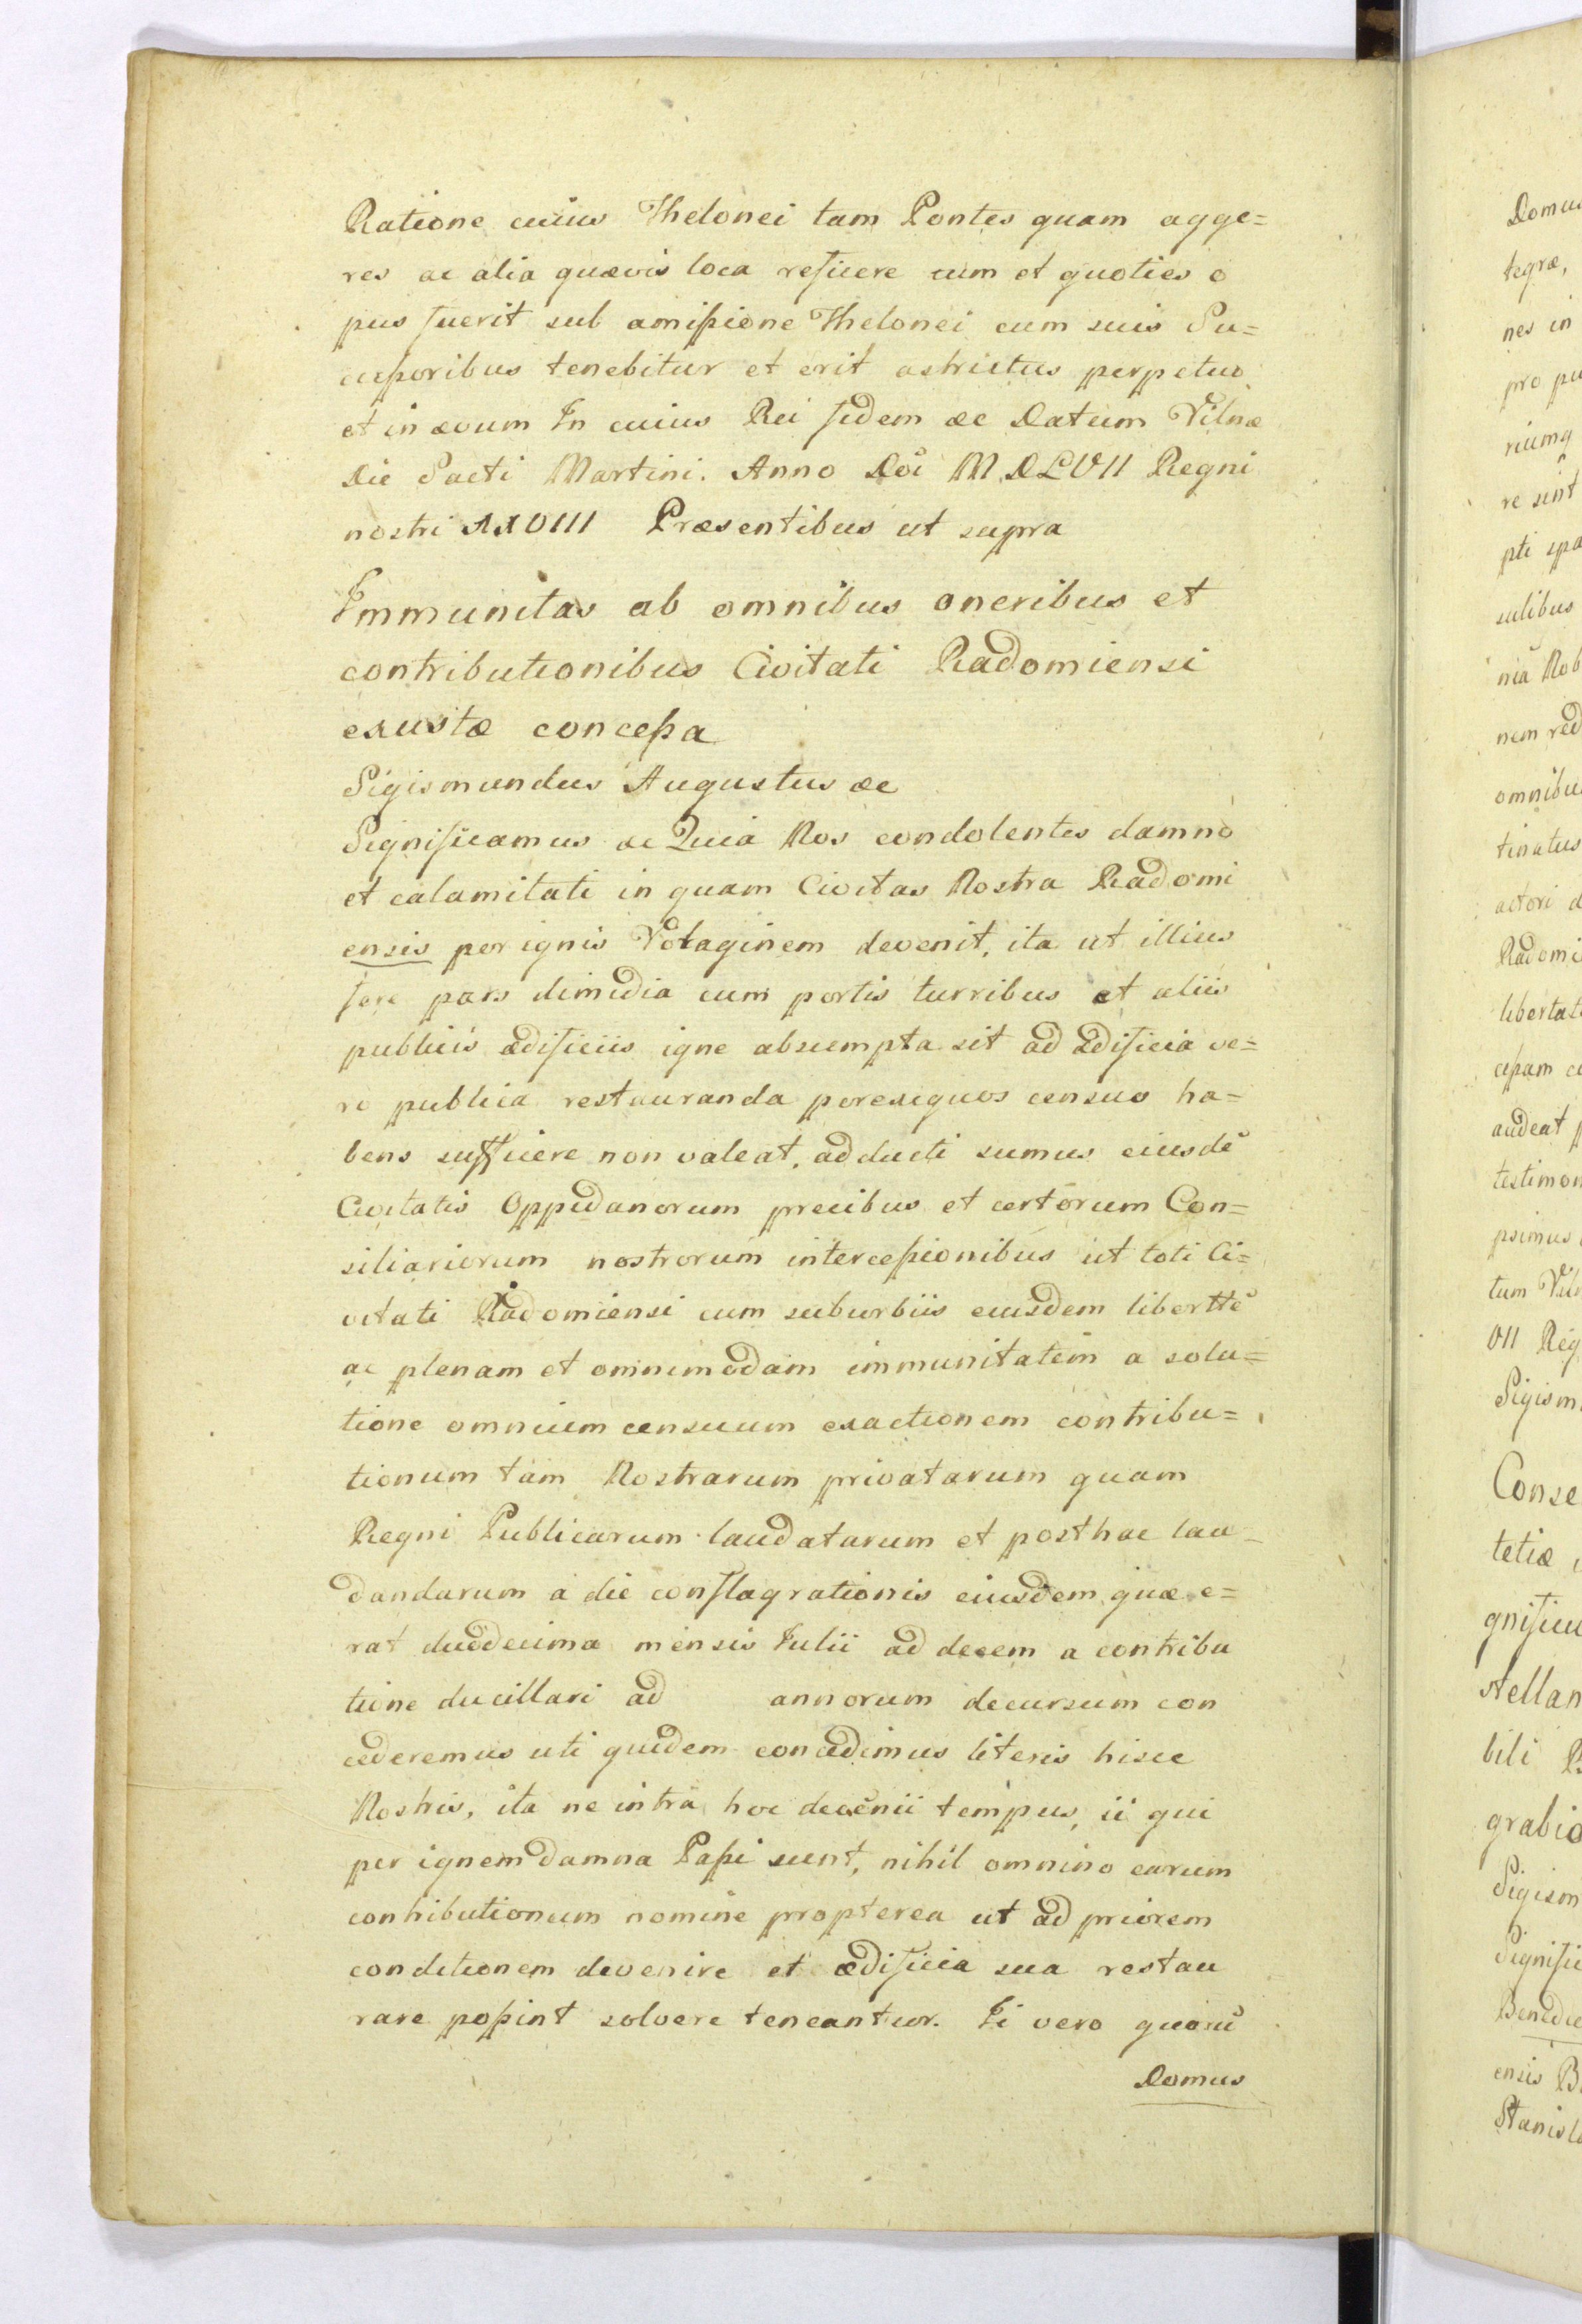 Ratione cuius Thelonei tam Pontes quam agge=
res ac alia quævis loca reficere cum et quoties o
pus fuerit sub amißione Thelonei cum suis Su=
ceßoribus tenebitur et erit astrictus perpetuo
et in ævum In cuius Rei fidem &c Datum Vilnæ
Die Sacti Martini. Anno Dôi M.DLVII Regni
nostri XXVIII Præsentibus ut supra
Immunitas ab omnibus oneribus et
contributionibus Civitati Radomiensi
exustæ conceßa
Sigismundus Augustus &c
Significamus &c Quia Nos condolentes damno
et calamitati in quam Civitas Nostra Radomi
ensis per ignis Votaginem devenit, ita ut illius
fere pars dimidia cum portis turribus et aliis
publicis ædificiis igne absumpta sit ad ædificia ve=
ro publica restauranda perexiguos census ha=
bens sufficere non valeat, adducti sumus eiusdẽ
Civitatis Oppidanorum precibus et certorum Con=
siliariorum nostrorum interceßionibus ut toti Ci=
vitati Radomiensi cum suburbiis eiusdem liberttẽ
ac plenam et omnimodam immunitatem a solu=
tione omnium censuum exactionem contribu=
tionum tam Nostrarum privatarum quam
Regni Publicarum laudatarum et posthac lau-
dandarum a die conflagrationis eiusdem quæ e=
rat duodecima mensis Iulii ad decem a contribu
tione ducillari ad annorum decursum con
cederemus uti quidem concedimus literis hisce
Nostris, ita ne intra hoc decẽnii tempus, ii qui
per ignem damna Paßi sunt, nihil omnino earum
contributionum nomine propterea ut ad priorem
conditionem devenire et ædificia sua restau
rare poßint solvere teneantur. Ii vero quorũ
Domus
Domus
tegræ,
nes in
pro pu
riumq
re sint
pti spa
sulibus
nia Nob
nem red
omnibu
tinatus
actori d
Radomi
libertat
ceßam
audeat p
testimon
psimus
tum Viln
VII Reg
Sigism
Conse
tetiæ
gnificu
Aellan
bili
grabio
Sigism
Signifi
Benedic
ensis B
Stanisl